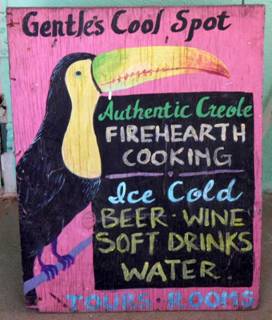 Gentle's Cool Spot
Authentic Creole
FIREHEARTH
COOKING
Ice Cold
BEER · WINE
SOFT DRINKS
WATER
TOURS · ROOMS